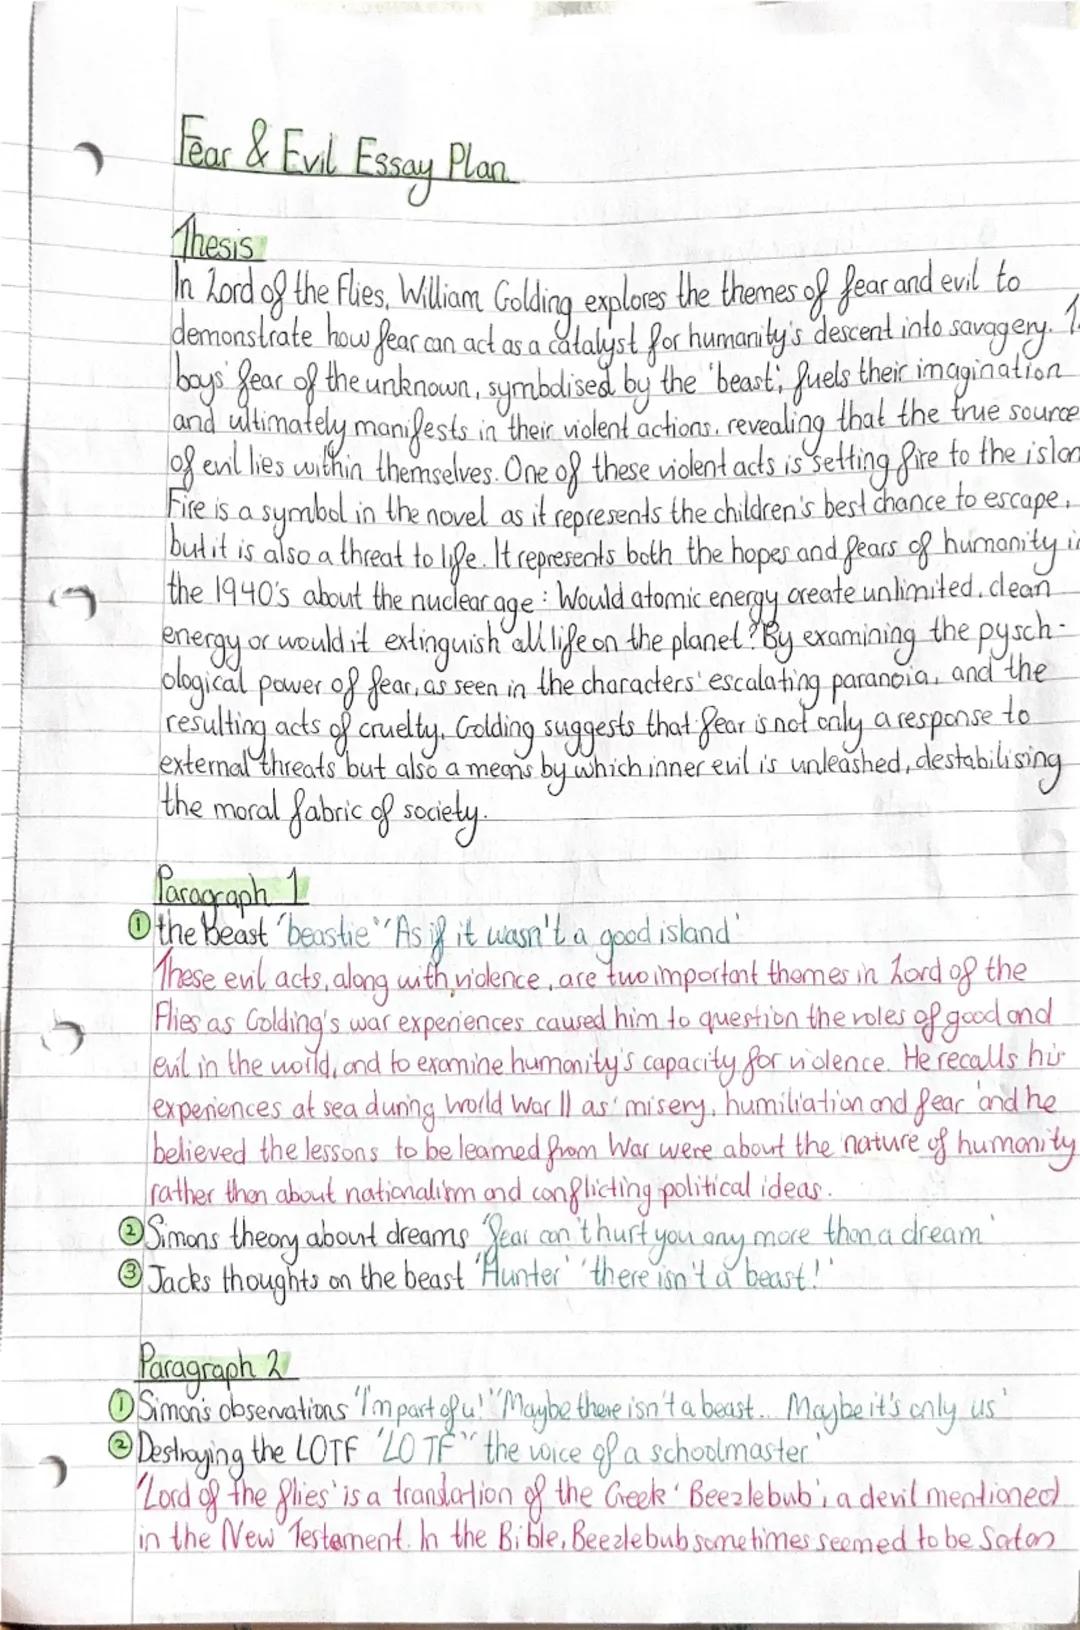 Fear & Evil Essay Plan
Thesis
In Lord of the Flies, William Golding explores the themes of fear and evil to
demonstrate how fear can act as a catalyst for humanity's descent into savagery.
boys' fear of the unknown, symbolised by the 'beast', fuels their imagination
and ultimately manifests in their violent actions, revealing that the true source
of evil lies within themselves. One of these violent acts is setting fire to the
Fire is a symbol in the novel as it represents the children's best chance to escape,
but it is also a threat to life. It represents both the hopes and fears of humanity
the 1940's about the nuclear age: Would atomic energy create unlimited, clean
energy or would it extinguish all life on the planet? By examining the pysch-
ological power of fear, as seen in the characters' escalating paranoia, and the
resulting acts of cruelty, Golding suggests that fear is not only a response to
external threats but also a means by which inner evil is unleashed, destabilising
the moral fabric of society.
Paragraph 1
① the Beast 'beastie' 'As if it wasn't a good island'
These evil acts, along with violence, are two important themes in Lord of the
Flies as Golding's war experiences caused him to question the roles of good and
evil in the world, and to examine humanity's capacity for violence. He recalls his
experiences at sea during World War II as 'misery, humiliation and fear' and he
believed the lessons to be learned from War were about the nature of humanity
rather than about nationalism and conflicting political ideas.
② Simons theory about dreams 'fear can't hurt you any more than a dream'
③ Jacks thoughts on the beast 'Hunter' 'there isn't a beast!'
Paragraph 2
① Simon's observations 'I'm part of u!' 'Maybe there isn't a beast... Maybe it's only us'
② Destroying the LOTF 'LOTF' 'the voice of a schoolmaster'
'Lord of the flies' is a translation of the Greek 'Beezlebub', a devil mentioned
in the New Testament. In the Bible, Beezlebub sometimes seemed to be Satan